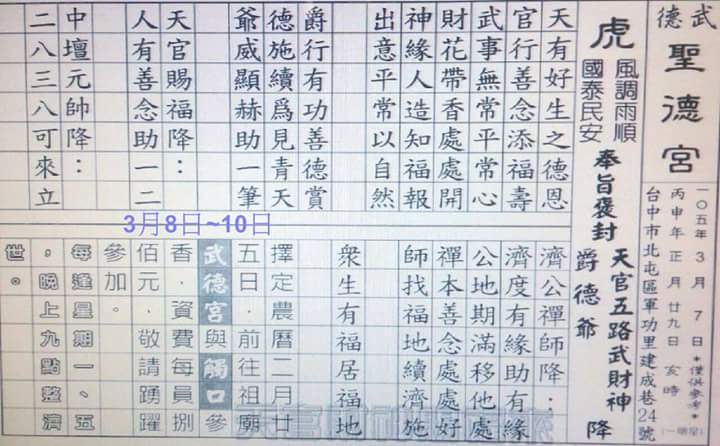 武德
聖德宮
一〇五年3月7日*僅供參考*
丙申年正月廿九日亥時
台中市北屯區軍功里建成巷24號
虎
風調雨順
國泰民安
奉旨褒封
天官五路武財神
爵德爺
降
天有好生之德恩
官行善念添福壽
武事無常平常心
財花帶香處處開
神緣人造知福報
出意平常以自然
爵行有功善德賞
德施續爲見青天
爺威顯赫助一筆
天官賜福降：
人有善念助一二
中壇元帥降：
二八三八可來立
3月8日~10日
濟公禪師降：
濟度有緣助有緣
公地期滿移他處
禪本善念處處好
師找福地續濟施
眾生有福居福地
擇定農曆二月廿
五日．前往祖廟
武德宮與觸口參
香．資費每員捌
佰元．敬請踴躍
參加。
每逢星期一、五
，晚上九點整。濟
世。